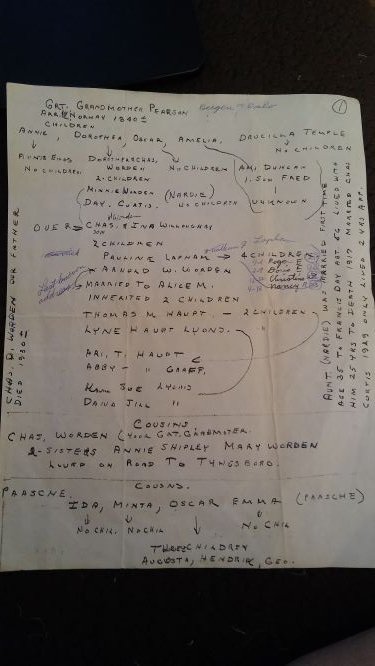 ①
GRT. GRANDMOTHER PEARSON
ARR. NORWAY 1840 ±
CHILDREN
ANNIE, DOROTHEA, OSCAR, AMELIA, DRUCILLA TEMPLE
NO CHILDREN
AUNTIE ENOS
NO CHILDREN
DOROTHEA & CHAS.
WORDEN
2 CHILDREN
NO CHILDREN
DUNCAN
1. SON FRED
UNKNOWN
MINNIE WORDEN (NARDIE)
DAY. CURTIS. NO CHILDREN
DUE 2 → CHAS. & INA WILLOUGHBY
2 CHILDREN
PAULINE LAPHAM → 4 CHILDREN
Nancy
ARNOLD W. WORDEN
MARRIED TO ALICE M.
INHERITED 2 CHILDREN
THOMAS M. HAUPT. - 2 CHILDREN
LYNE HAUPT LYONS.
ARI. T. HAUPT
ABBY - " GRAFF.
SUE LYONS
DAVID JILL "
COUSINS
CHAS. WORDEN (YOUR GRT. GRANDFATHER
2 - SISTERS ANNIE SHIPLEY MARY WORDEN
LIVED ON ROAD TO TYNGSBORO.
COUSINS.
PAASCHE.
IDA, MINTA, OSCAR EMMA (PAASCHE)
NO CHIL. NO CHIL
NO CHIL
THREE CHILDREN
AUGUSTA, HENDRIK, GEO.
CHAS. D. WORDEN OUR FATHER
DIED 1930 ±
AUNT (NARDIE) WAS MARRIED FIRST TIME
AGE 35 TO FRANCIS DAY AGE 76. LIVED WITH
HIM 25 YRS TO DEATH 1917. MARRIED CHAS
CURTIS 1929 ONLY LIVED 2 YRS APP.